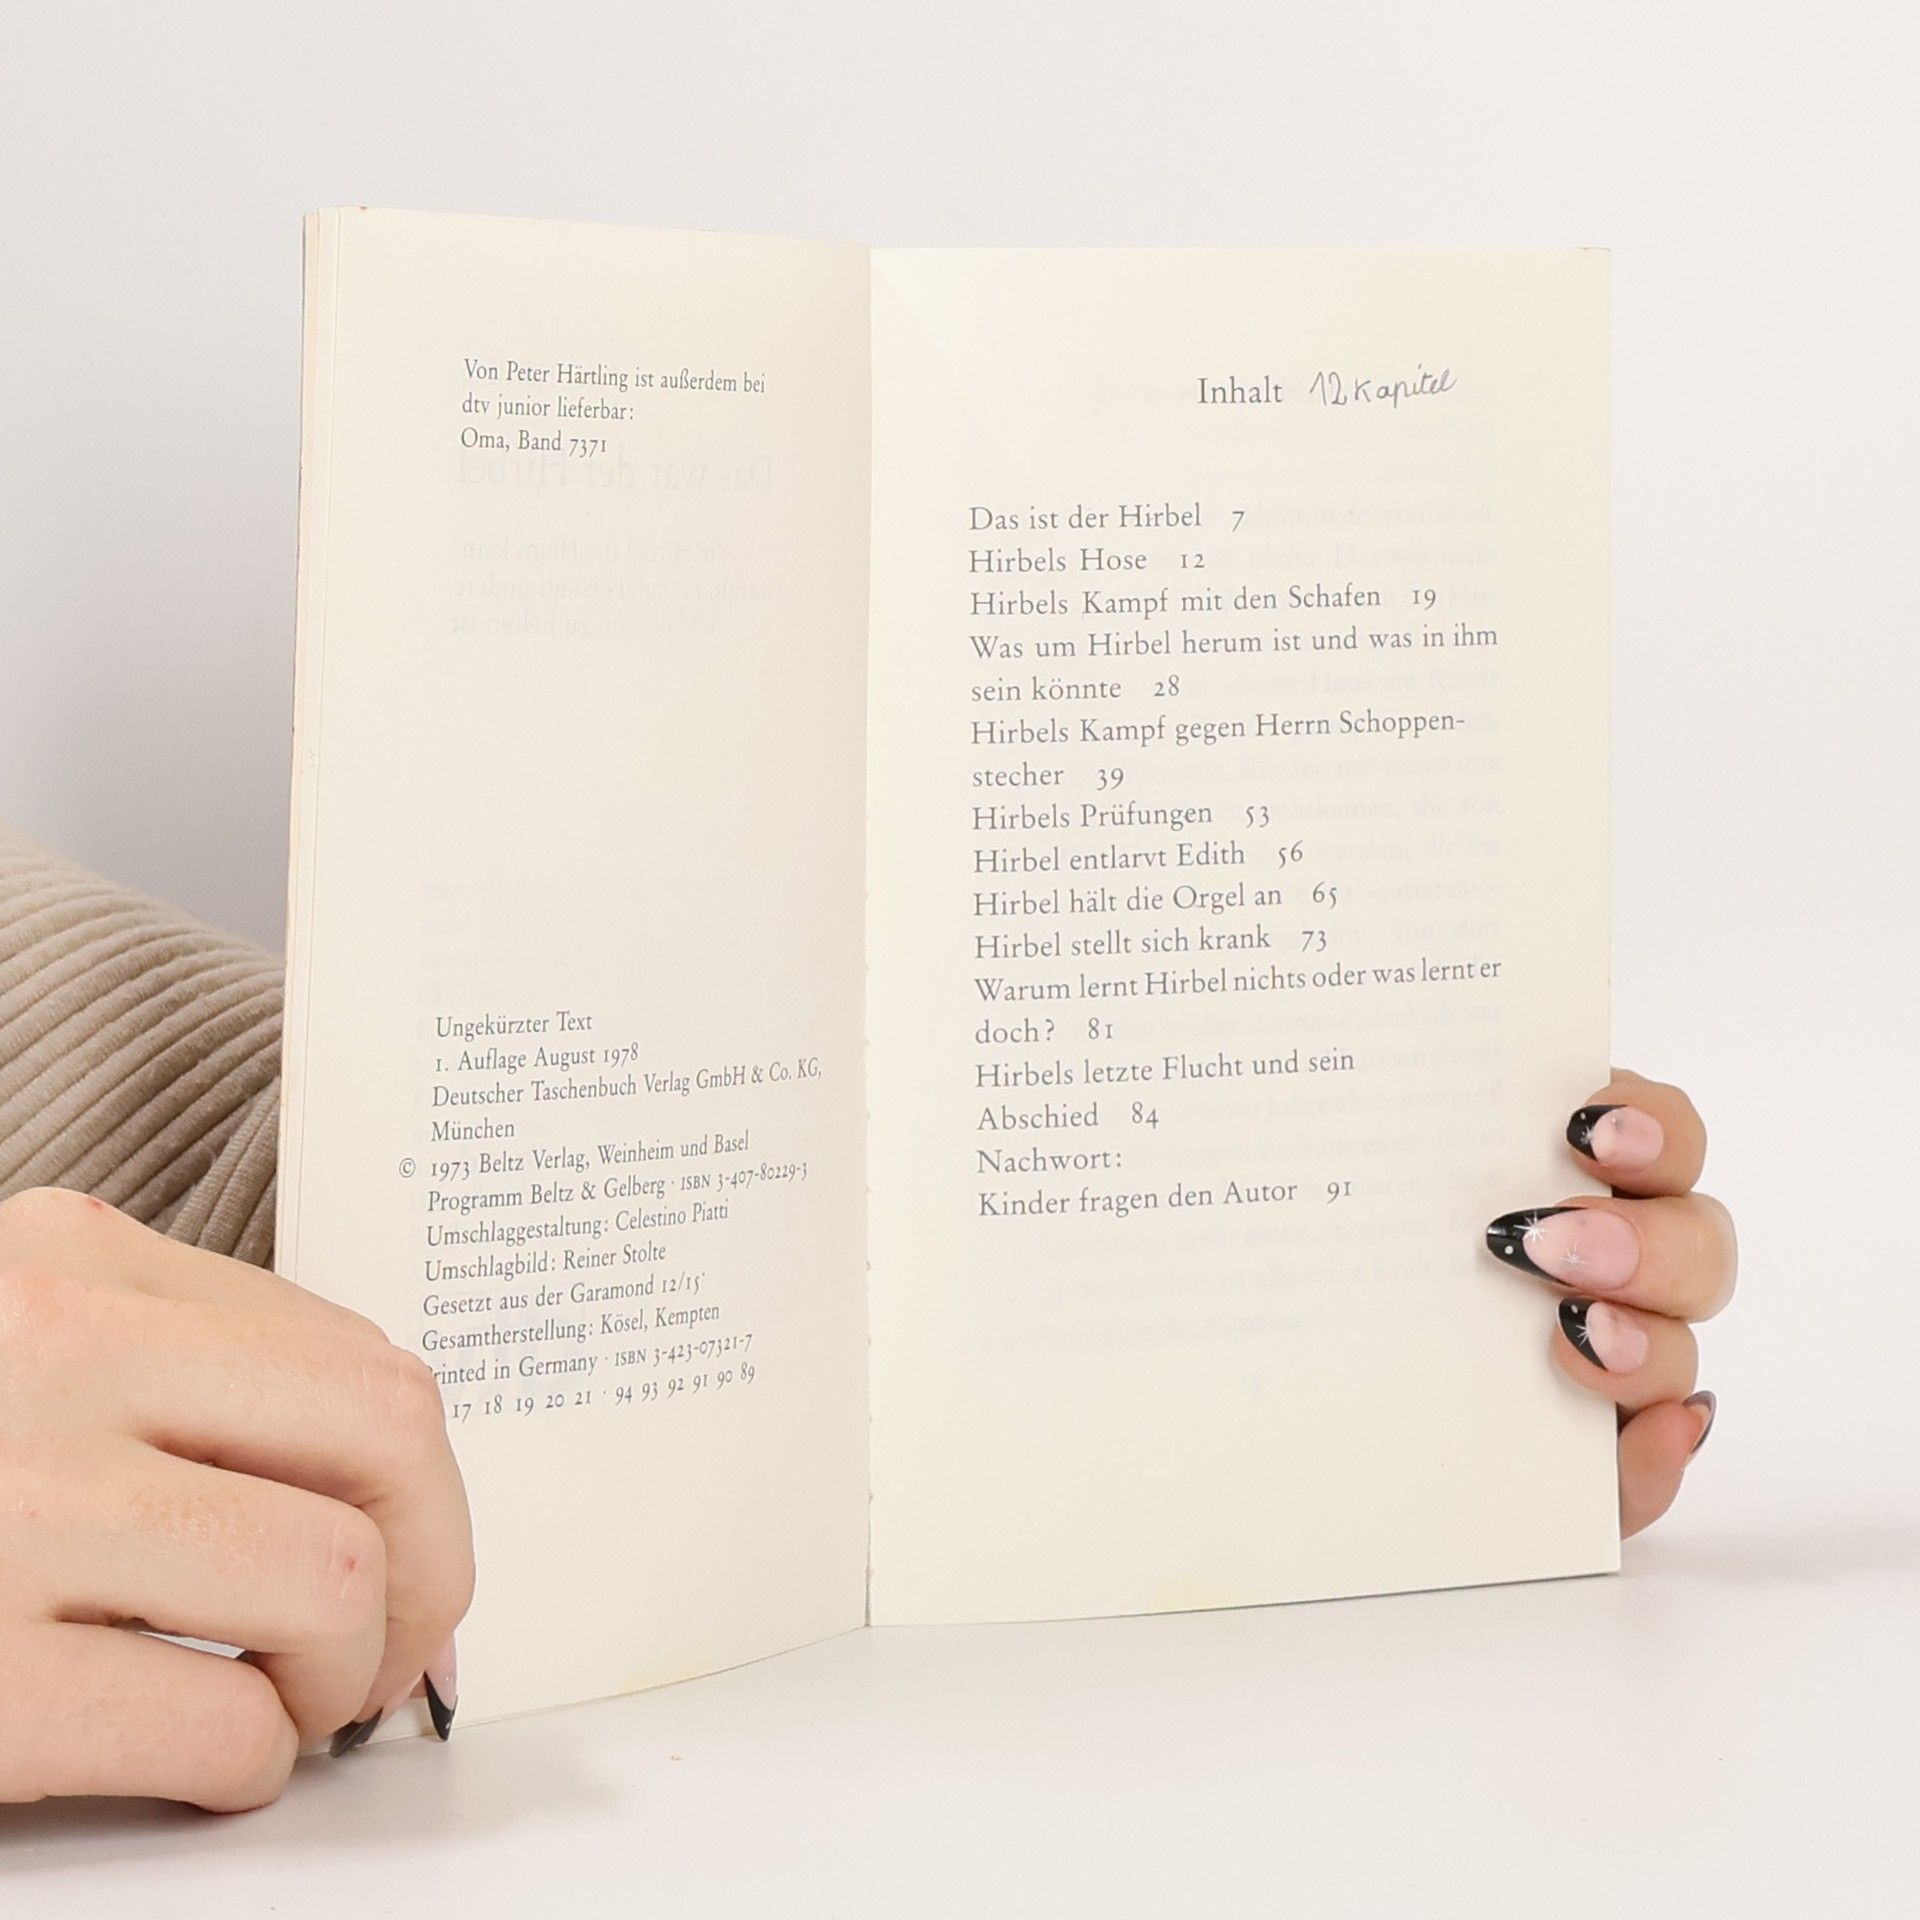 Von Peter Härtling ist außerdem bei
dtv junior lieferbar:
Oma, Band 7371
Ungekürzter Text
1. Auflage August 1978
Deutscher Taschenbuch Verlag GmbH & Co. KG,
München
© 1973 Beltz Verlag, Weinheim und Basel
Programm Beltz & Gelberg · ISBN 3-407-80229-3
Umschlaggestaltung: Celestino Piatti
Umschlagbild: Reiner Stolte
Gesetzt aus der Garamond 12/15˙
Gesamtherstellung: Kösel, Kempten
Printed in Germany · ISBN 3-423-07321-7
17 18 19 20 21 · 94 93 92 91 90 89
Inhalt 12 Kapitel
Das ist der Hirbel 7
Hirbels Hose 12
Hirbels Kampf mit den Schafen 19
Was um Hirbel herum ist und was in ihm
sein könnte 28
Hirbels Kampf gegen Herrn Schoppen-
stecher 39
Hirbels Prüfungen 53
Hirbel entlarvt Edith 56
Hirbel hält die Orgel an 65
Hirbel stellt sich krank 73
Warum lernt Hirbel nichts oder was lernt er
doch? 81
Hirbels letzte Flucht und sein
Abschied 84
Nachwort:
Kinder fragen den Autor 91